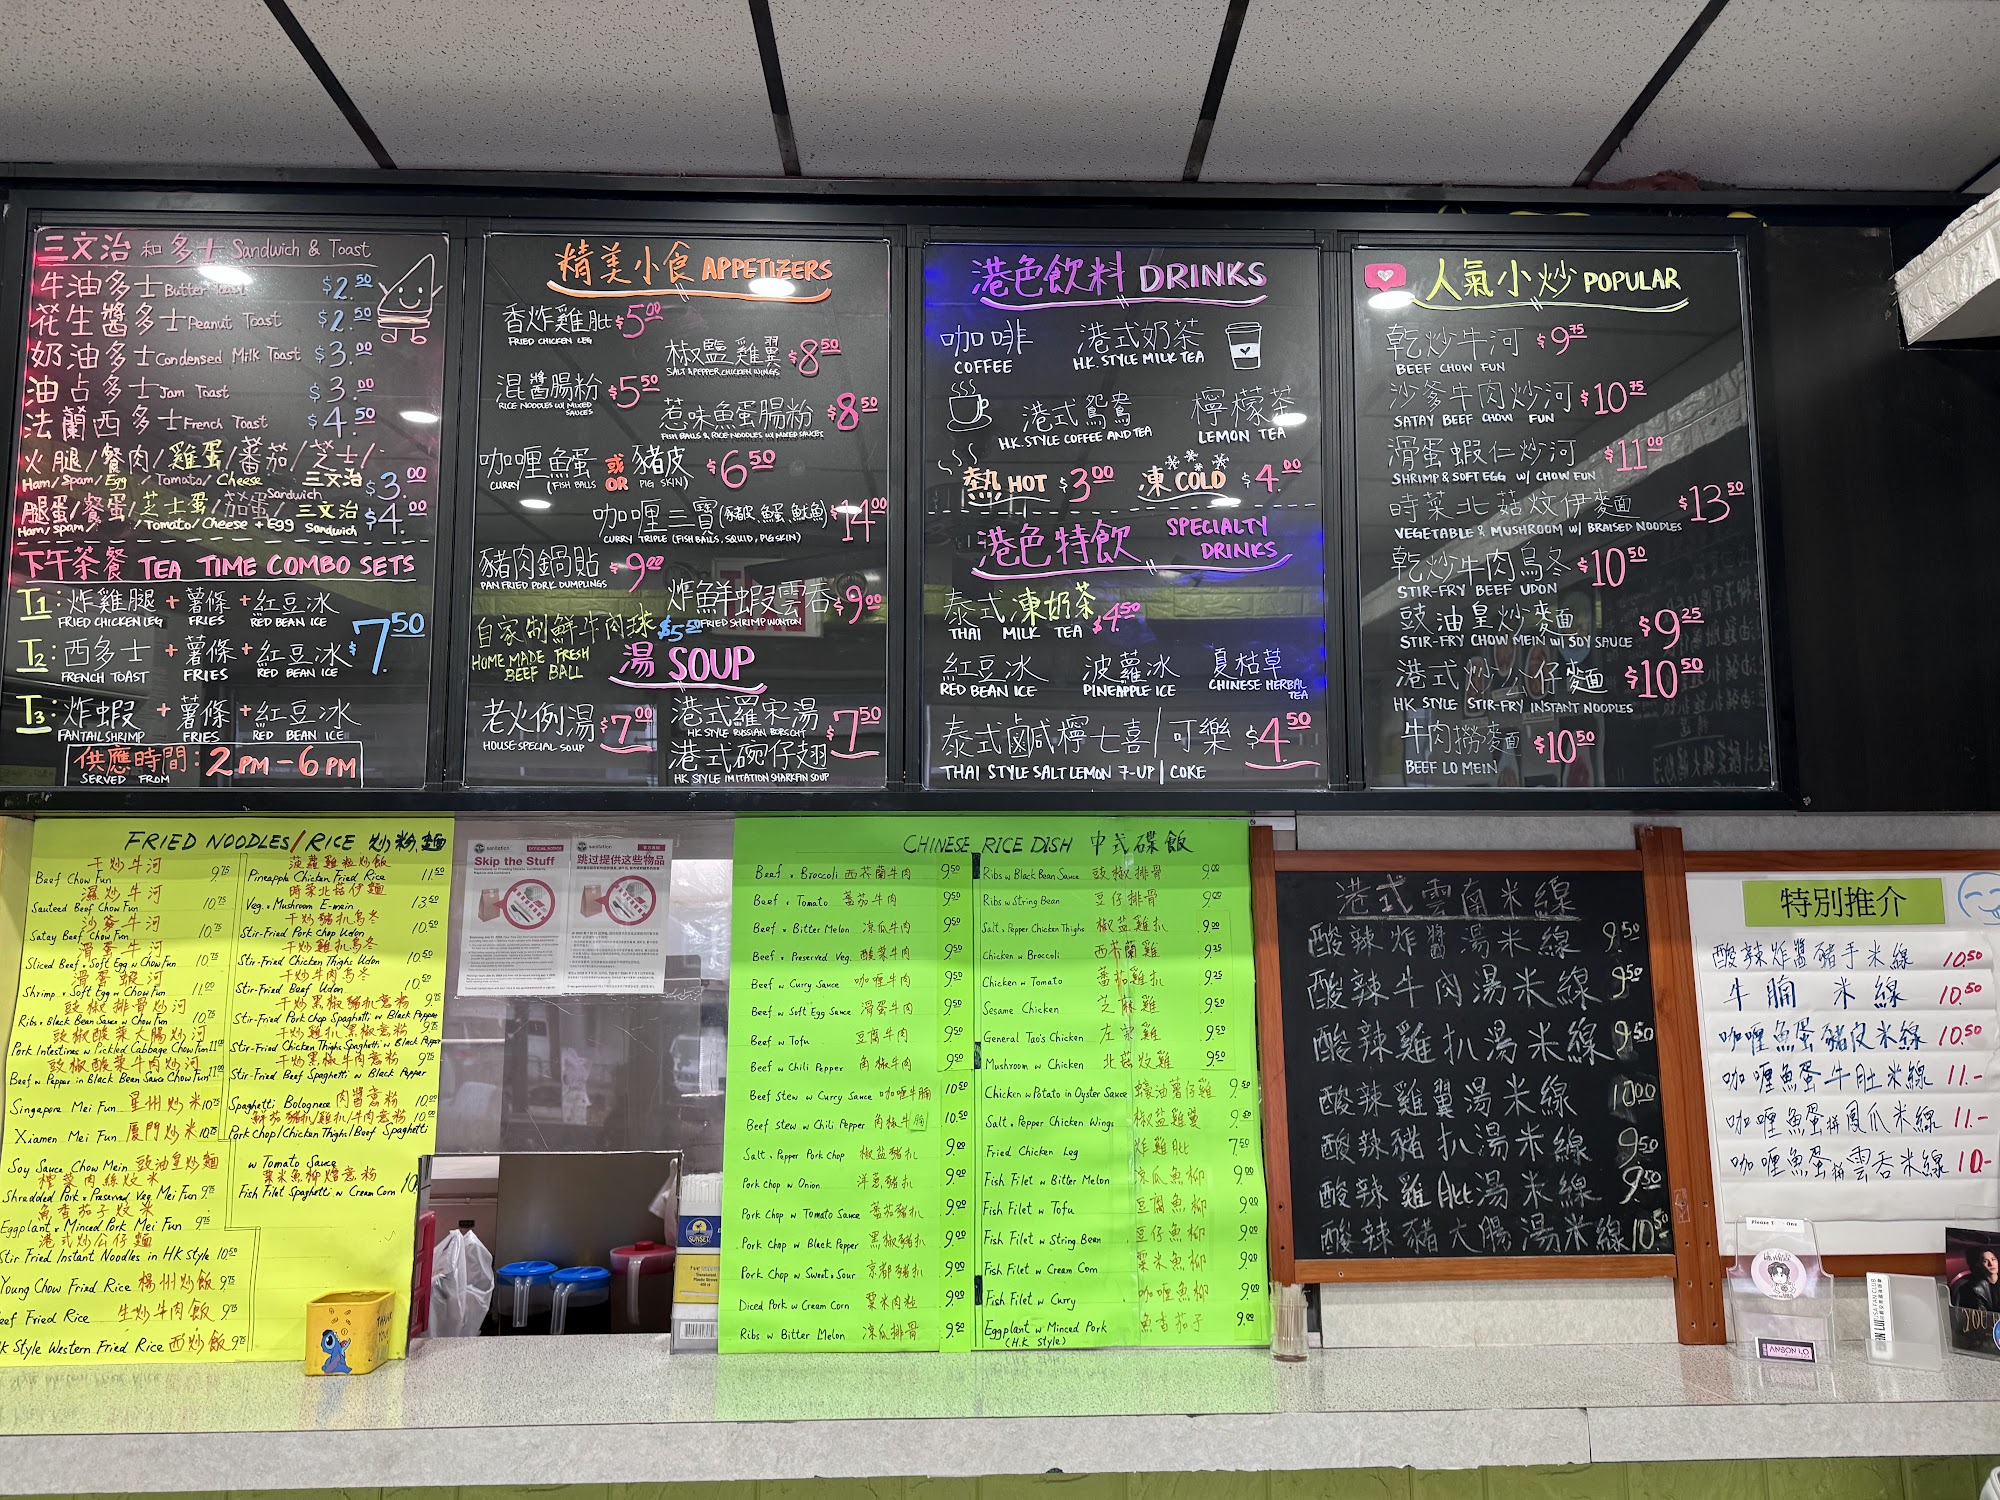 三文治 和 多士 Sandwich & Toast
牛油多士 Butter Toast $2.50
花生醬多士 Peanut Toast $2.50
奶油多士 Condensed Milk Toast $3.00
油占多士 Jam Toast $3.00
法蘭西多士 French Toast $4.50
火腿/餐肉/雞蛋/蕃茄/芝士/
Ham/Spam/Egg/Tomato/Cheese 三文治 $3.00
Sandwich
腿蛋/餐蛋/芝士蛋/茄蛋/三文治 $4.00
Ham/Spam/Tomato/Cheese + Egg Sandwich
下午茶餐 TEA TIME COMBO SETS
T1: 炸雞腿 + 薯條 + 紅豆冰
FRIED CHICKEN LEG FRIES RED BEAN ICE
T2: 西多士 + 薯條 + 紅豆冰 $7.50
FRENCH TOAST FRIES RED BEAN ICE
T3: 炸蝦 + 薯條 + 紅豆冰
FANTAIL SHRIMP FRIES RED BEAN ICE
供應時間: 2PM-6PM
SERVED FROM
精美小食 APPETIZERS
香炸雞肶 $5.00
FRIED CHICKEN LEG
椒鹽雞翼 $8.50
SALT & PEPPER CHICKEN WINGS
混醬腸粉 $5.50
RICE NOODLES W/ MIXED SAUCES
惹味魚蛋腸粉 $8.50
FISH BALLS & RICE NOODLES W/ MIXED SAUCES
咖喱魚蛋 或 OR 豬皮 $6.50
CURRY (FISH BALLS PIG SKIN)
咖喱三寶(豬皮,魚蛋,魷魚) $14.00
CURRY TRIPLE (FISH BALLS, SQUID, PIG SKIN)
豬肉鍋貼 $9.00
PAN FRIED PORK DUMPLINGS
炸鮮蝦雲吞 $9.00
FRIED SHRIMP WONTON
自家制鮮牛肉球 $5.50
HOME MADE FRESH BEEF BALL
湯 SOUP
老火例湯 $7.00
HOUSE SPECIAL SOUP
港式羅宋湯
HK STYLE RUSSIAN BORSCHT
港式碗仔翅 $7.50
HK STYLE IMITATION SHARKFIN SOUP
港色飲料 DRINKS
咖啡 港式奶茶
COFFEE H.K. STYLE MILK TEA
港式鴛鴦 檸檬茶
H.K. STYLE COFFEE AND TEA LEMON TEA
熱 HOT $3.00 凍 COLD $4.00
港色特飲 SPECIALTY DRINKS
泰式凍奶茶 $4.50
THAI MILK TEA
紅豆冰 波蘿冰 夏枯草
RED BEAN ICE PINEAPPLE ICE CHINESE HERBAL TEA
泰式鹹檸七喜/可樂 $4.50
THAI STYLE SALT LEMON 7-UP | COKE
人氣小炒 POPULAR
乾炒牛河 $9.75
BEEF CHOW FUN
沙爹牛肉炒河 $10.75
SATAY BEEF CHOW FUN
滑蛋蝦仁炒河 $11.00
SHRIMP & SOFT EGG W/ CHOW FUN
時菜北菇炆伊麵 $13.50
VEGETABLE & MUSHROOM W/ BRAISED NOODLES
乾炒牛肉烏冬 $10.50
STIR-FRY BEEF UDON
豉油皇炒麵 $9.25
STIR-FRY CHOW MEIN W/ SOY SAUCE
港式炒公仔麵 $10.50
HK STYLE STIR-FRY INSTANT NOODLES
牛肉撈麵 $10.50
BEEF LO MEIN
FRIED NOODLES/RICE 炒粉.麵
干炒牛河
Beef Chow Fun 9.75
濕炒牛河
Sauteed Beef Chow Fun 10.75
沙爹牛河
Satay Beef Chow Fun 10.75
滑蛋牛河
Sliced Beef & Soft Egg w Chow Fun
滑蛋蝦河
Shrimp & Soft Egg w Chow Fun 11.00
豉椒排骨炒河
Ribs & Black Bean Sauce w Chow Fun 10.75
豉椒酸菜大腸炒河
Pork Intestines w Pickled Cabbage Chow Fun 11.00
豉椒酸菜牛肉炒河
Beef w Pepper in Black Bean Sauce Chow Fun 11.00
Singapore Mei Fun 星州炒米 10.75
Xiamen Mei Fun 廈門炒米 10.75
Soy Sauce Chow Mein 豉油皇炒麵
榨菜肉絲炆米
Shredded Pork & Preserved Veg. Mei Fun 9.75
魚香茄子炆米
Eggplant & Minced Pork Mei Fun 9.75
港式炒公仔麵
Stir Fried Instant Noodles in HK Style 10.50
Young Chow Fried Rice 楊州炒飯 9.75
Beef Fried Rice 生炒牛肉飯 9.75
HK Style Western Fried Rice 西炒飯 9.75
菠蘿雞粒炒飯
Pineapple Chicken Fried Rice 11.50
時菜北菇伊麵
Veg. & Mushroom E-mein 13.50
干炒豬扒烏冬
Stir-Fried Pork Chop Udon 10.50
干炒雞扒烏冬
Stir-Fried Chicken Thighs Udon 10.50
干炒牛肉烏冬
Stir-Fried Beef Udon 10.50
干炒黑椒豬扒意粉 9.75
Stir-Fried Pork Chop Spaghetti w Black Pepper
干炒雞扒黑椒意粉 9.75
Stir-Fried Chicken Thighs Spaghetti w Black Pepper
干炒黑椒牛肉意粉 9.75
Stir-Fried Beef Spaghetti w Black Pepper
Spaghetti Bolognese 肉醬意粉 10.00
鮮茄豬扒/雞扒/牛肉意粉 10.00
Pork Chop/Chicken Thighs/Beef Spaghetti
w Tomato Sauce
粟米魚柳醬意粉
Fish Filet Spaghetti w Cream Corn 10
sanitation OFFICIAL NOTICE
Skip the Stuff
sanitation 官方通知
跳过提供这些物品
CHINESE RICE DISH 中式碟飯
Beef & Broccoli 西芥蘭牛肉 9.50
Beef & Tomato 蕃茄牛肉 9.50
Beef & Bitter Melon 凉瓜牛肉 9.50
Beef & Preserved Veg. 酸菜牛肉 9.50
Beef w Curry Sauce 咖喱牛肉 9.50
Beef w Soft Egg Sauce 滑蛋牛肉 9.50
Beef w Tofu 豆腐牛肉 9.50
Beef w Chili Pepper 角椒牛肉 9.50
Beef Stew w Curry Sauce 咖喱牛腩 10.50
Beef Stew w Chili Pepper 角椒牛腩 10.50
Salt & Pepper Pork Chop 椒盐豬扒 9.00
Pork Chop w Onion 洋葱豬扒 9.00
Pork Chop w Tomato Sauce 蕃茄豬扒 9.00
Pork Chop w Black Pepper 黑椒豬扒 9.00
Pork Chop w Sweet & Sour 京都豬扒 9.00
Diced Pork w Cream Corn 粟米肉粒 9.00
Ribs w Bitter Melon 凉瓜排骨 9.00
Ribs w Black Bean Sauce 豉椒排骨 9.00
Ribs w String Bean 豆仔排骨 9.00
Salt & Pepper Chicken Thighs 椒盐雞扒 9.25
Chicken w Broccoli 西芥蘭雞 9.25
Chicken w Tomato 蕃茄雞扒 9.25
Sesame Chicken 芝麻雞 9.25
General Tao's Chicken 左宗雞 9.50
Mushroom w Chicken 北菇炆雞 9.50
Chicken w Potato in Oyster Sauce 蠔油薯仔雞 9.50
Salt & Pepper Chicken Wings 椒盐雞翼
Fried Chicken Leg 炸雞肶 7.50
Fish Filet w Bitter Melon 凉瓜魚柳 9.00
Fish Filet w Tofu 豆腐魚柳 9.00
Fish Filet w String Bean 豆仔魚柳 9.00
Fish Filet w Cream Corn 粟米魚柳 9.00
Fish Filet w Curry 咖喱魚柳 9.00
Eggplant w Minced Pork 魚香茄子 9.00
(H.K Style)
港式雲南米線
酸辣炸醬湯米線 9.50
酸辣牛肉湯米線 9.50
酸辣雞扒湯米線 9.50
酸辣雞翼湯米線 10.00
酸辣豬扒湯米線 9.50
酸辣雞肶湯米線 9.50
酸辣豬大腸湯米線 10.50
特別推介
酸辣炸醬豬手米線 10.50
牛腩米線 10.50
咖喱魚蛋豬皮米線 10.50
咖喱魚蛋牛肚米線 11.-
咖喱魚蛋拼鳳爪米線 11.-
咖喱魚蛋拼雲吞米線 10.-
SUNSET
ANSON LO